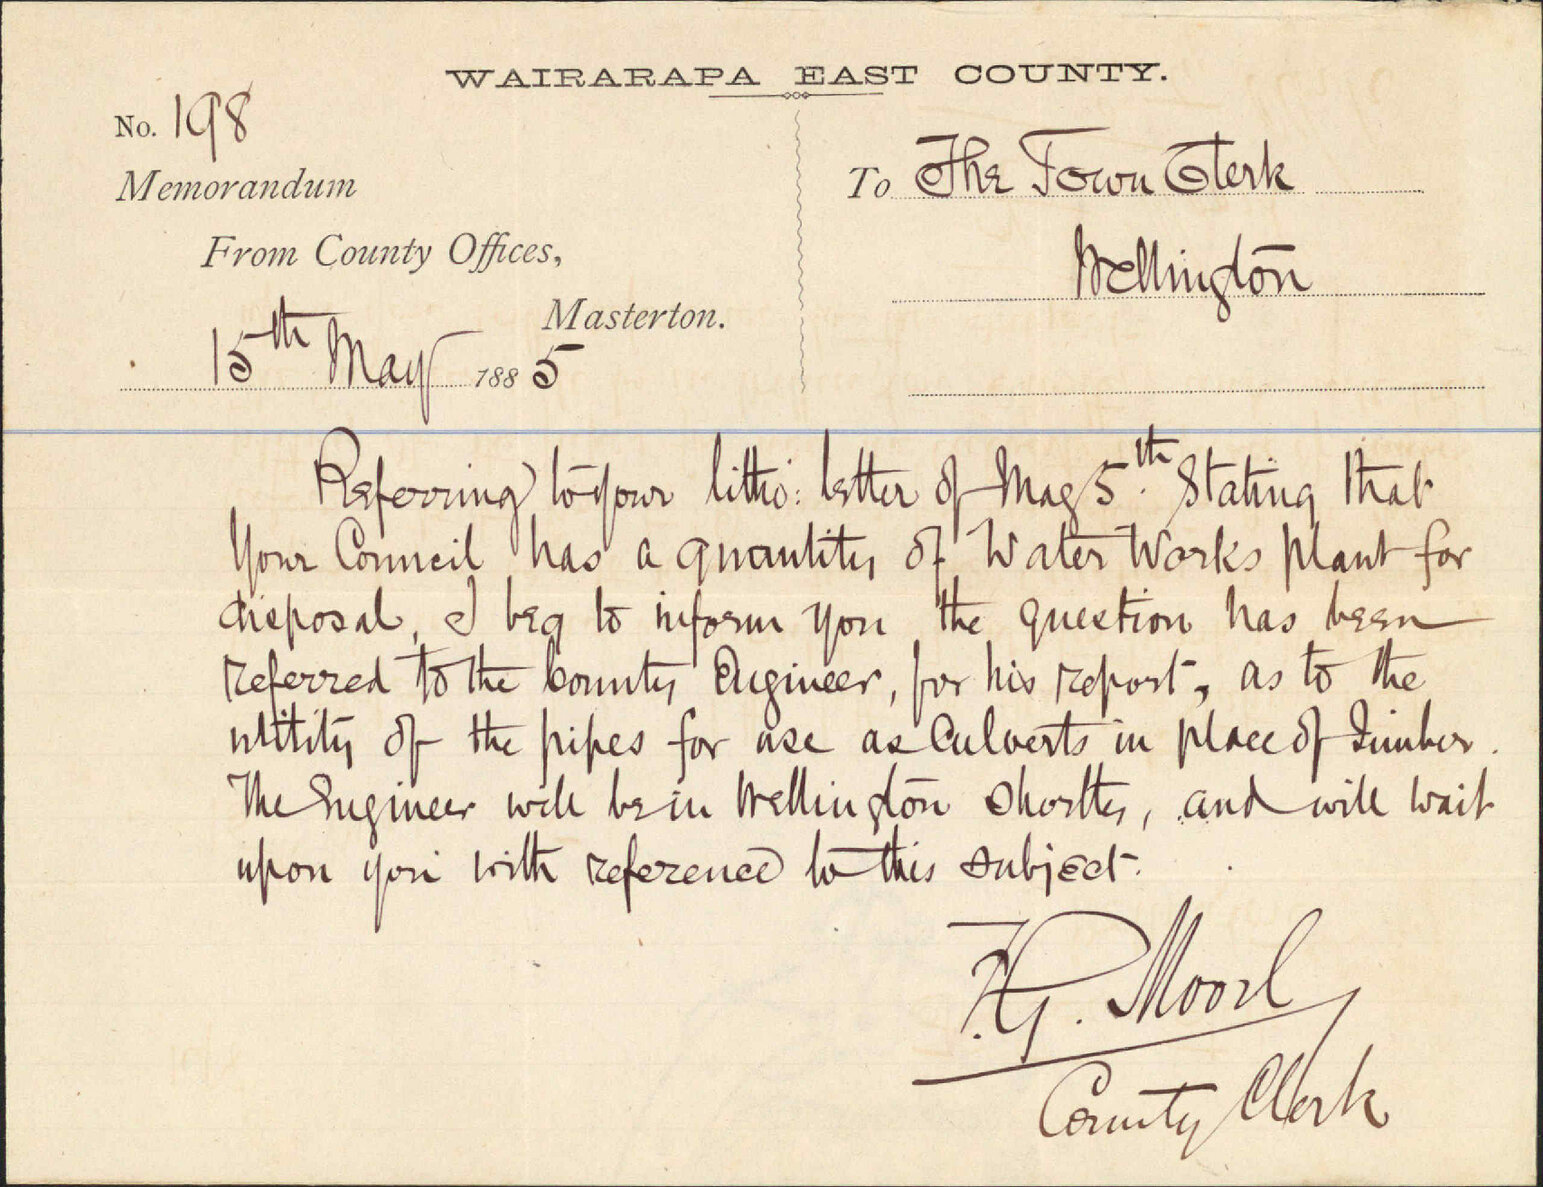 WAIRARAPA EAST COUNTY.
No. 198
Memorandum
From County Offices,
Masterton.
15th May 1885
To The Town Clerk
Wellington
Referring to your litho: letter of May 5th. Stating that
Your Council has a quantity of Water Works plant for
disposal, I beg to inform you the question has been
referred to the County Engineer, for his report, as to the
utility of the pipes for use as Culverts in place of Timber.
The Engineer will be in Wellington Shortly, and will wait
upon you with reference to this subject.
F. G. Moore
County Clerk